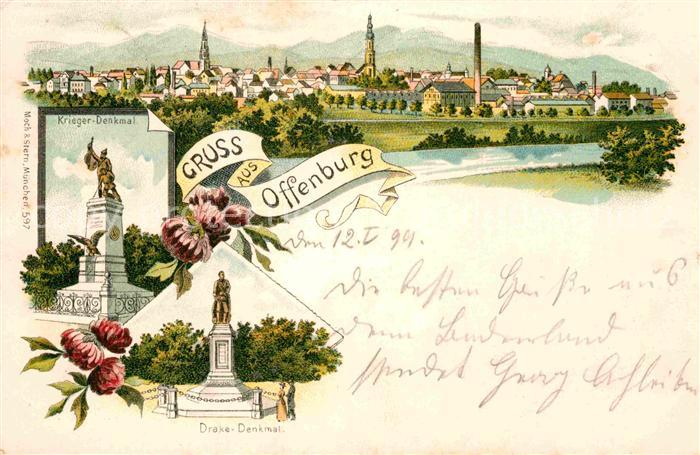 Krieger-Denkmal.
Moch & Stern, München. 597
GRUSS
AUS
Offenburg
den 12. I 99.
Die besten Grüße aus
dem Badnerland
sendet Georg
Drake-Denkmal.